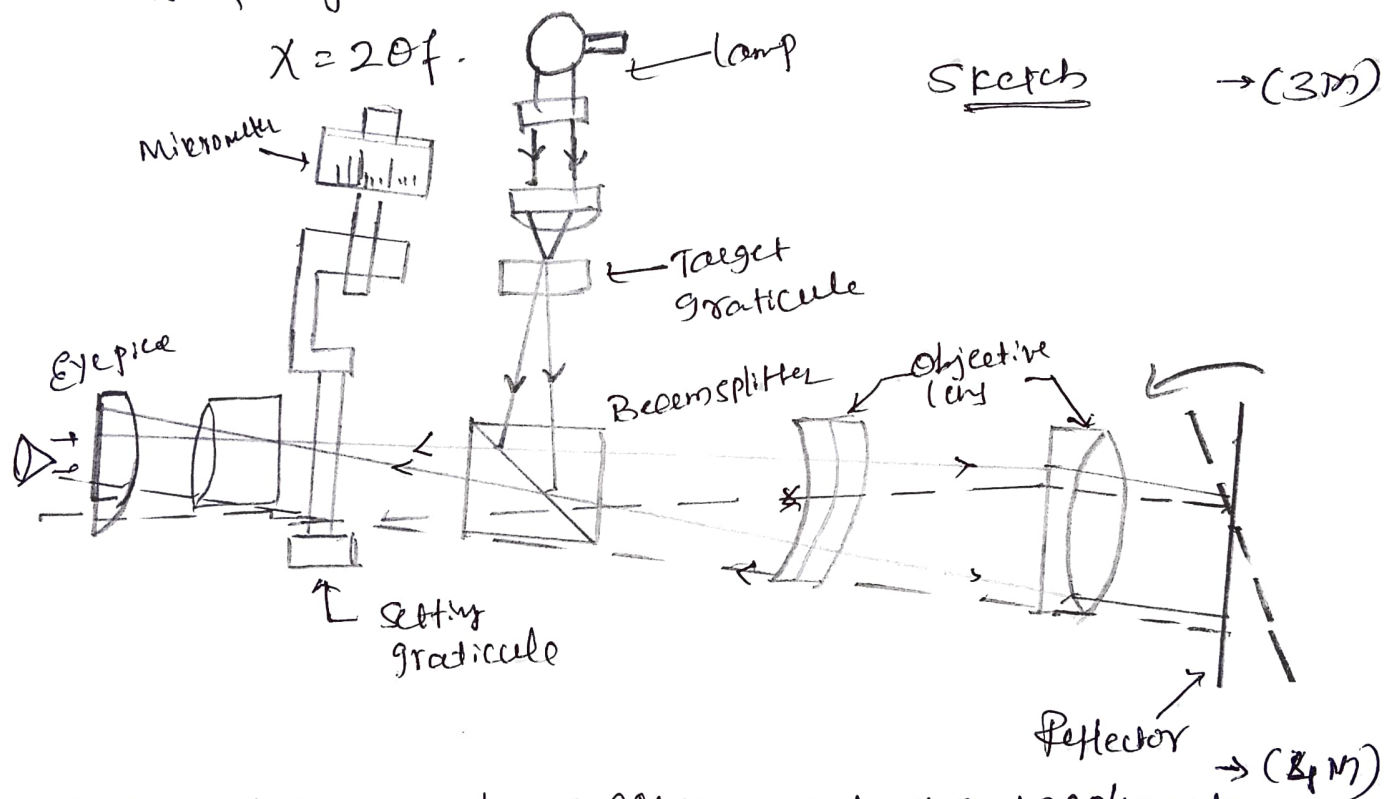 X = 2θf.
lamp
Sketch → (3M)
Micrometer
Target
graticule
Eyepiece
Beamsplitter
Objective
lens
Setting
graticule
Reflector